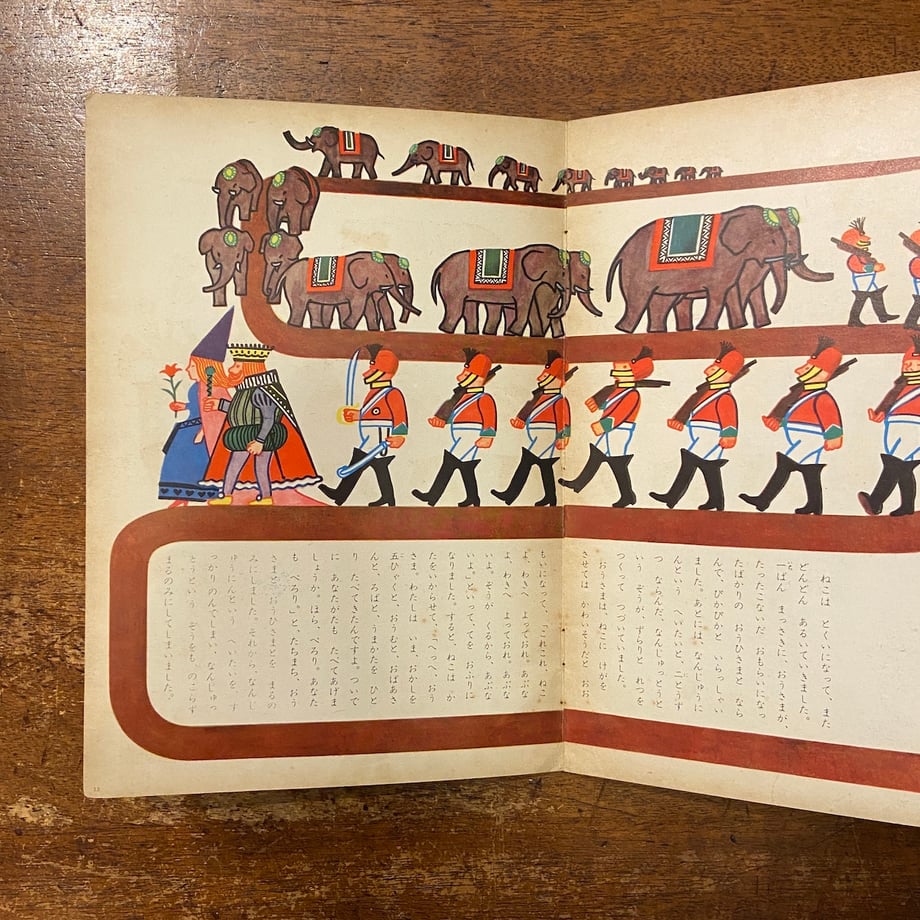 ねこは とくいになって、また
どんどん あるいていきました。
一ばん まっさきに おうさまが、
たったこないだ おもらいになっ
たばかりの おうひさまと なら
んで、ぴかぴかと いらっしゃい
ました。あとには、なんじゅうに
んという へいたいと、二とうず
つ ならんだ、なんじゅっとうと
いう ぞうが、ずらりと れつを
つくって つづいていました。
おうさまは、ねこに けがを
させては かわいそうだと おお
もいになって、「これこれ、ねこ
よ、わきへ よっておれ。あぶな
いよ。ぞうが くるから、あぶな
いよ」と、いって
なりました。すると、ねこは か
たをいからせて、「へっへ、おう
さま。わたしは いま、おかしを
五ひゃくと、おうむと、おばあさ
んと、ろばと、うまかたを ひと
り たべてきたんですよ。ついで
に あなたがたも たべてあげま
しょうか。ほら、ぺろり。あなた
も ぺろり。」と、たちまち、おう
さまと おうひさまを まるの
みにしました。それから、なんじ
ゅうにんという へいたいを、す
っかりのんでしまい、なんじゅっ
とうという ぞうをも、のこらず
まるのみにしてしまいました。
12